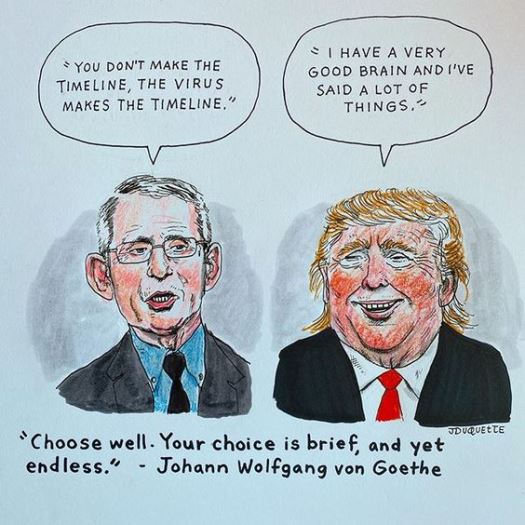 "YOU DON'T MAKE THE
TIMELINE, THE VIRUS
MAKES THE TIMELINE."
"I HAVE A VERY
GOOD BRAIN AND I'VE
SAID A LOT OF
THINGS."
JDUQUETTE
"Choose well. Your choice is brief, and yet
endless." - Johann Wolfgang von Goethe